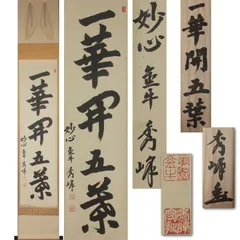 一華開五葉
妙心 金牛 秀峰
一華開五葉
妙心 金牛 秀峰
妙心 金牛 秀峰
一華開五葉
秀峰